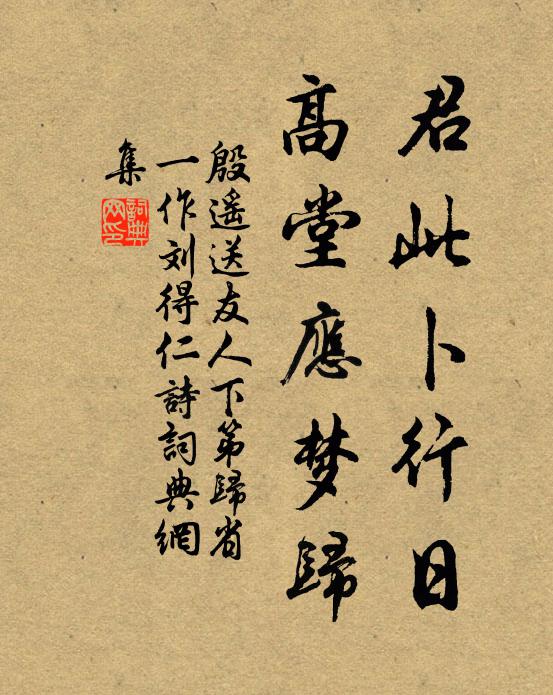 君此卜行日
高堂應梦歸
殷遥送友人下第歸省
一作刘得仁詩詞典網
集
詞典網印